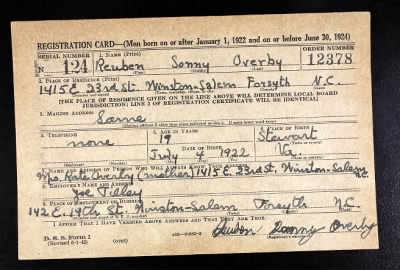 REGISTRATION CARD—(Men born on or after January 1, 1922 and on or before June 30, 1924)
SERIAL NUMBER 1. NAME (Print) ORDER NUMBER
N 124 Reuben Sonny Overby 12378
(First) (Middle) (Last)
2. PLACE OF RESIDENCE (Print)
1415 E. 23rd St. Winston-Salem Forsyth N.C.
[THE PLACE OF RESIDENCE GIVEN ON THE LINE ABOVE WILL DETERMINE LOCAL BOARD
JURISDICTION; LINE 2 OF REGISTRATION CERTIFICATE WILL BE IDENTICAL]
3. MAILING ADDRESS
Same
4. TELEPHONE 5. AGE IN YEARS 6. PLACE OF BIRTH
none 19 Stewart
DATE OF BIRTH
July 4 1922 Va.
7. NAME AND ADDRESS OF PERSON WHO WILL ALWAYS KNOW YOUR ADDRESS
Mrs. Kate Overby (mother) 1415 E. 23rd St. Winston-Salem
8. EMPLOYER'S NAME AND ADDRESS
Joe Tilley
9. PLACE OF EMPLOYMENT OR BUSINESS
142 E. 19th St. Winston-Salem Forsyth N.C.
I AFFIRM THAT I HAVE VERIFIED ABOVE ANSWERS AND THAT THEY ARE TRUE.
D. S. S. Form 1
(Revised 6-1-42) (over) Reuben Sonny Overby